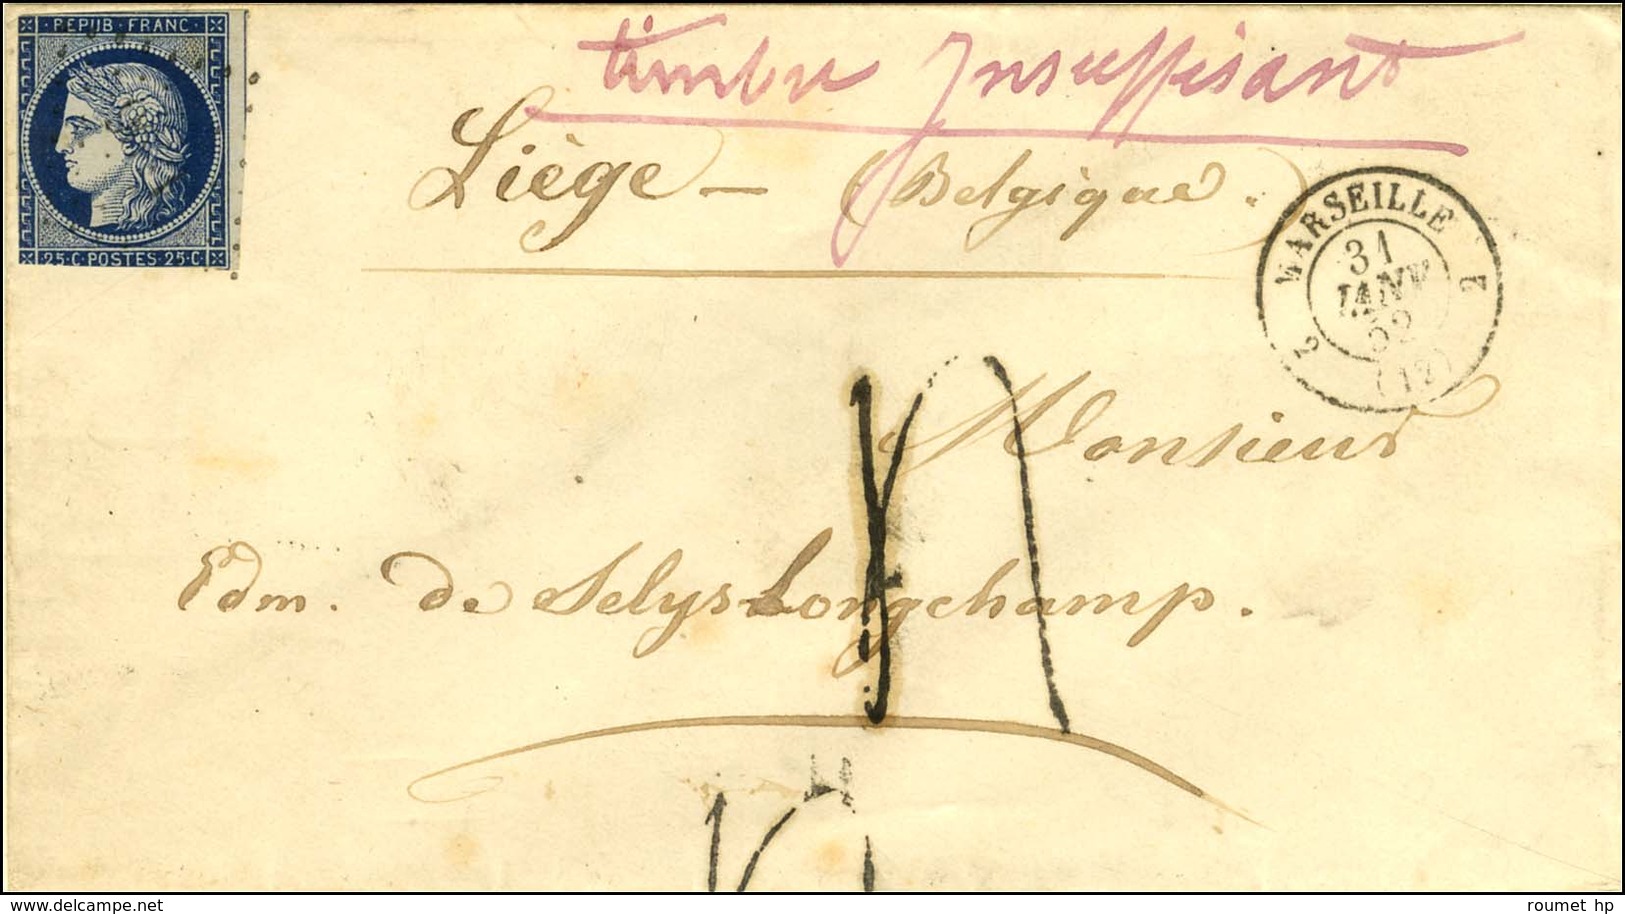 REPUB·FRANC·
25·C POSTES·25·C·
timbre Insuffisant
Liège — (Belgique.)
MARSEILLE
31
JANV
52
(12)
2
Monsieur
Edm. de Selys Longchamp.
delcampe.net
roumet hp